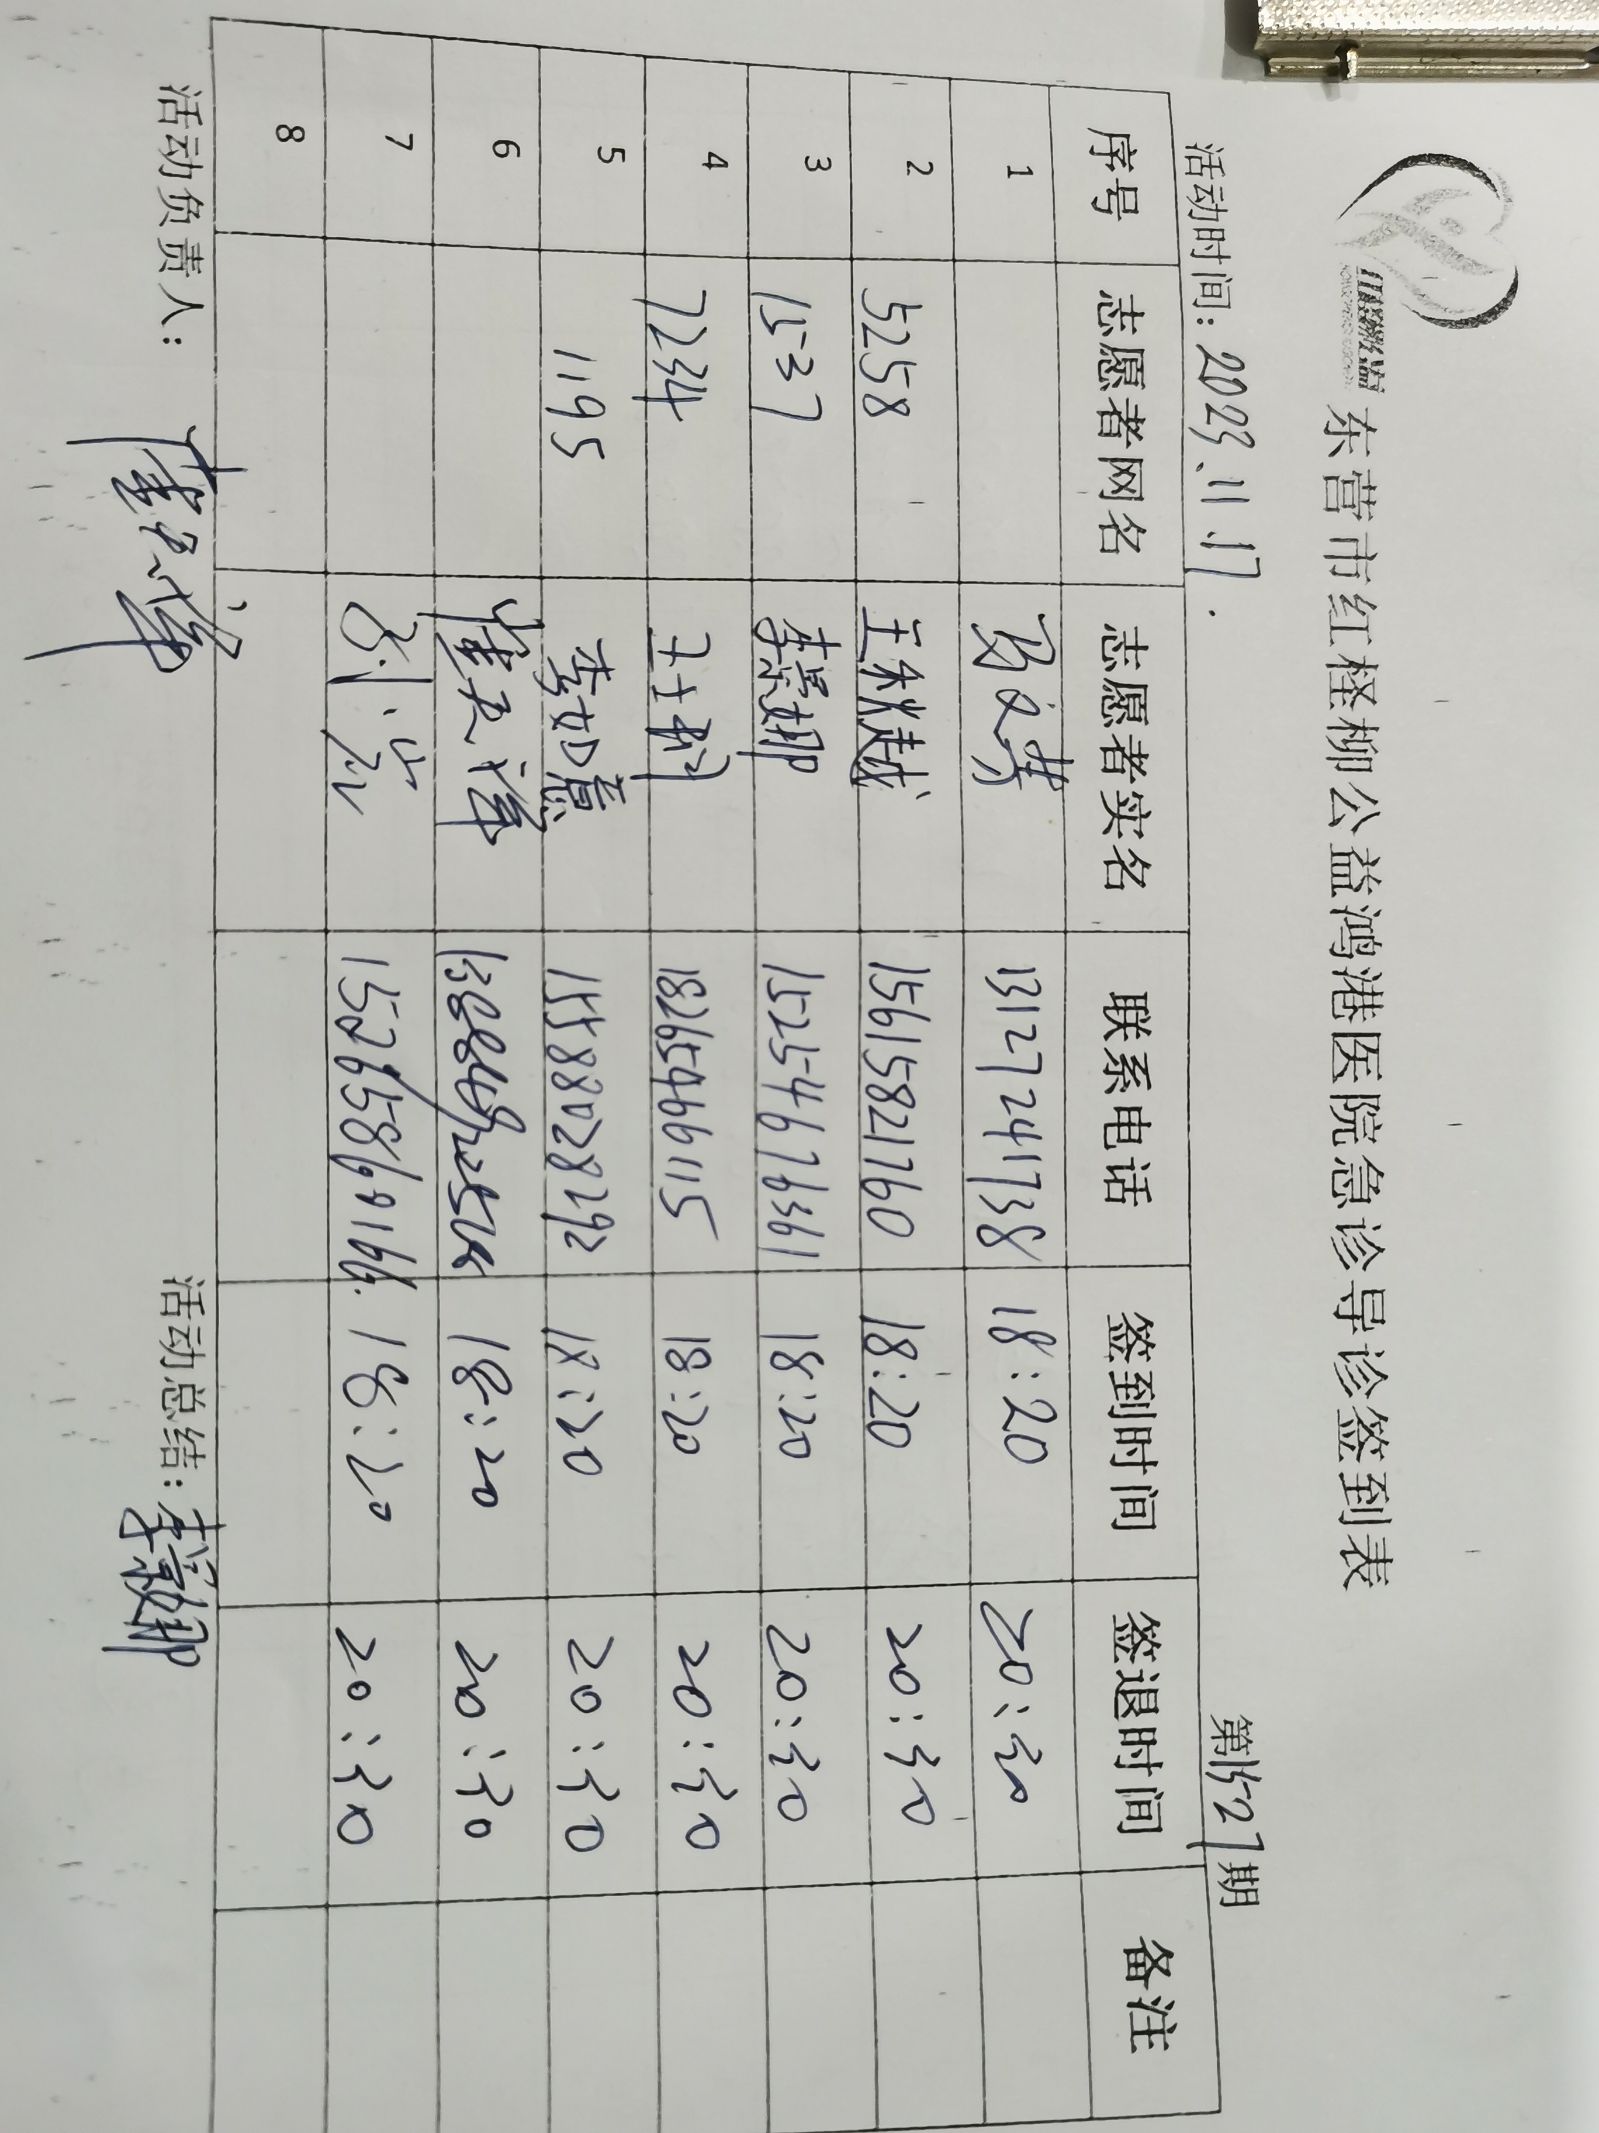 东营市红柽柳公益鸿港医院急诊导诊签到表
活动时间：2023.11.17. 第1527期
序号 志愿者网名 志愿者实名 联系电话 签到时间 签退时间 备注
1 13127241738 18:20 20:30
2 5258 王秋越 15615821760 18:20 20:30
3 1537 李景娜 15254676361 18:20 20:30
4 7234 18265466115 18:20 20:30
5 1195 李如意 15588028292 18:20 20:30
6 18:20 20:30
7 18:20 20:30
8
活动负责人： 活动总结：李景娜